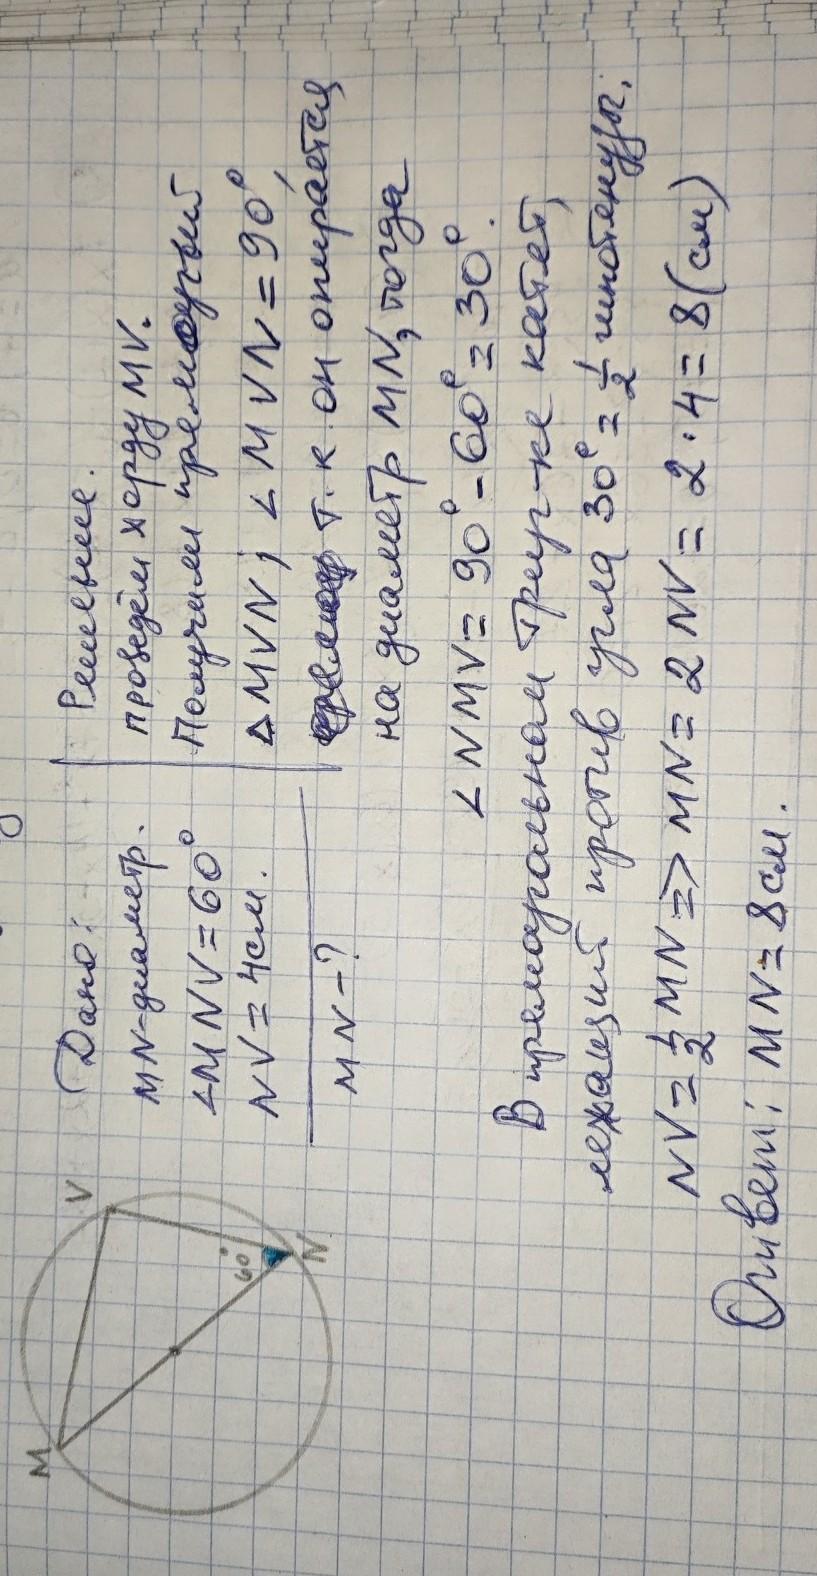 M
V
60°
N
Дано:
MN-диаметр.
∠MNV=60°
NV=4см.
MN-?
Решение.
проведём хорду MV.
Получим прямоуг-ый
△MVN; ∠MVN=90°,
т.к. он опирается
на диаметр MN, тогда
∠NMV=90°-60°=30°.
В прямоугольном треуг-ке катет,
лежащий против угла 30°=1/2 гипотенузы.
NV=1/2 MN=>MN=2NV=2·4=8(см)
Ответ: MN=8см.